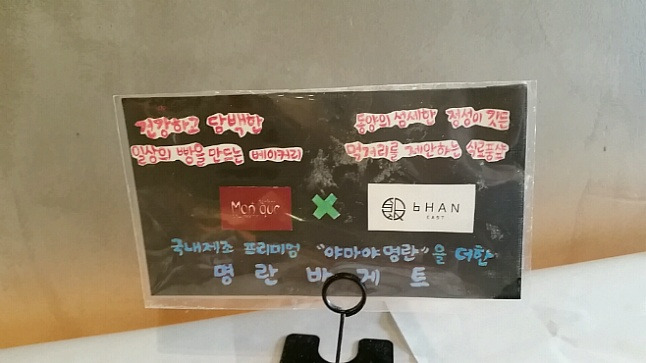 건강하고 담백한
일상의 빵을 만드는 베이커리
동양의 섬세한 정성이 깃든
먹거리를 제안하는 식료품샵
Mon jour
bHAN
EAST
국내제조 프리미엄 "야마야명란"을 더한
명란바게트